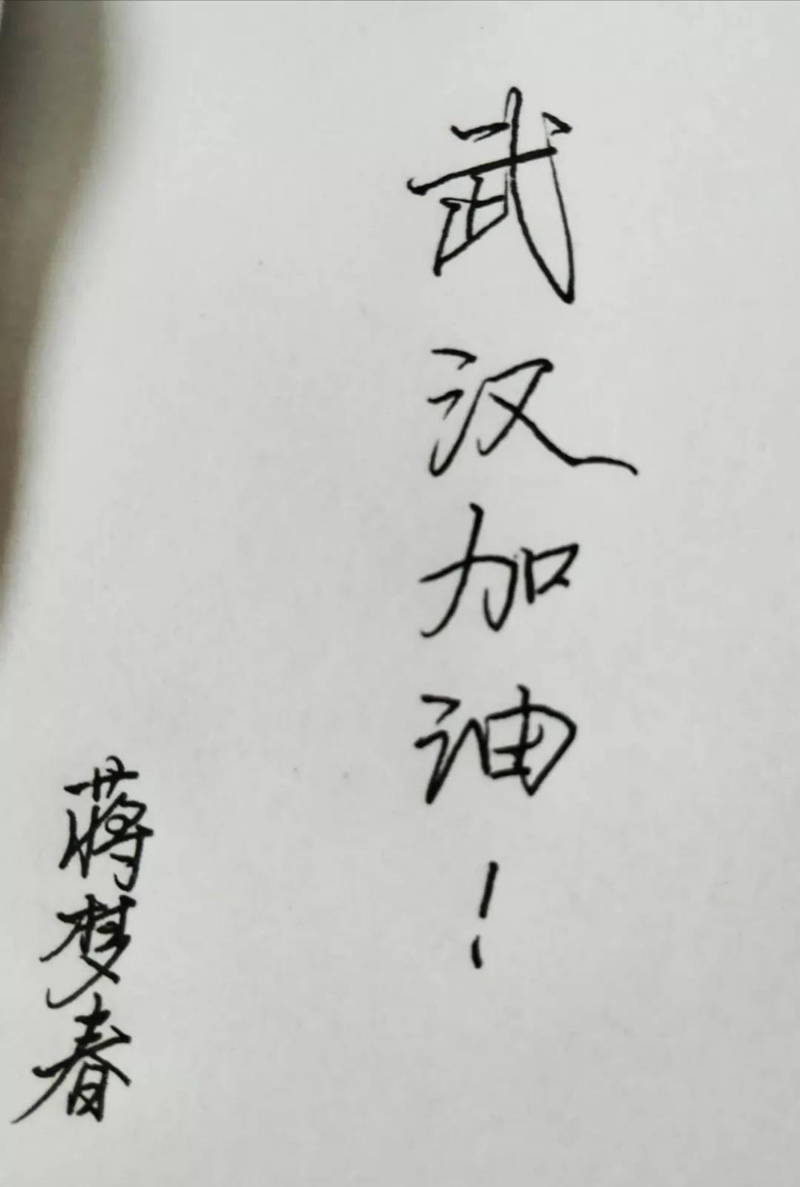 武汉加油！
蒋梦春